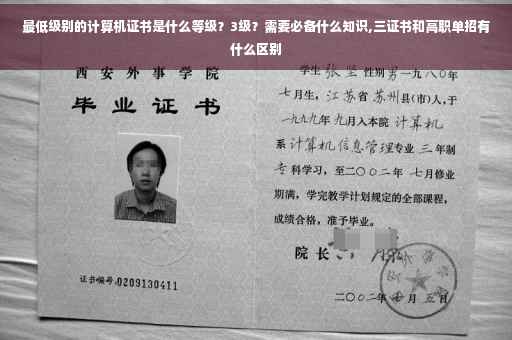 最低级别的计算机证书是什么等级？3级？需要必备什么知识,三证书和高职单招有
什么区别
西安外事学院
毕业证书
证书编号:0209130411
学生张坚性别男一九八〇年
七月生，江苏省苏州县(市)人,于
一九九九年九月入本院计算机
系计算机信息管理专业三年制
专科学习，至二〇〇二年七月修业
期满，学完教学计划规定的全部课程，
成绩合格，准予毕业。
院长
二〇〇二年 月五日